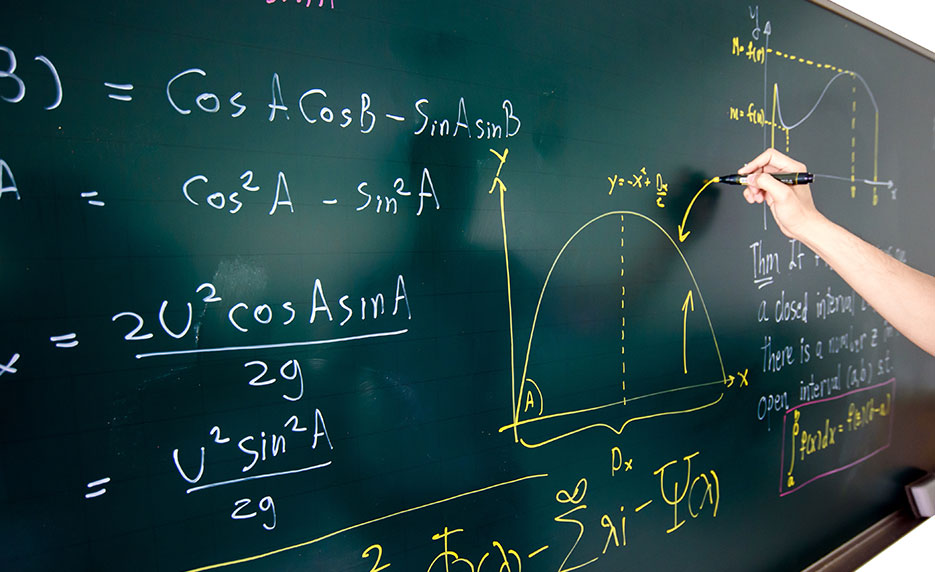 B) = Cos A Cos B - Sin A sin B
A = Cos² A - Sin² A
x = 2U² cos A sin A / 2g
= U² sin² A / 2g
Y
y = -x² +
A
X
Dx
∞
Σ λi - Ψ(λ)
y
M = f(
m = f(
x
Thm If
a closed interval
there is a number z
open interval (a,b) s.t.
b
∫ f(x)dx = f(z)(b-a)
a